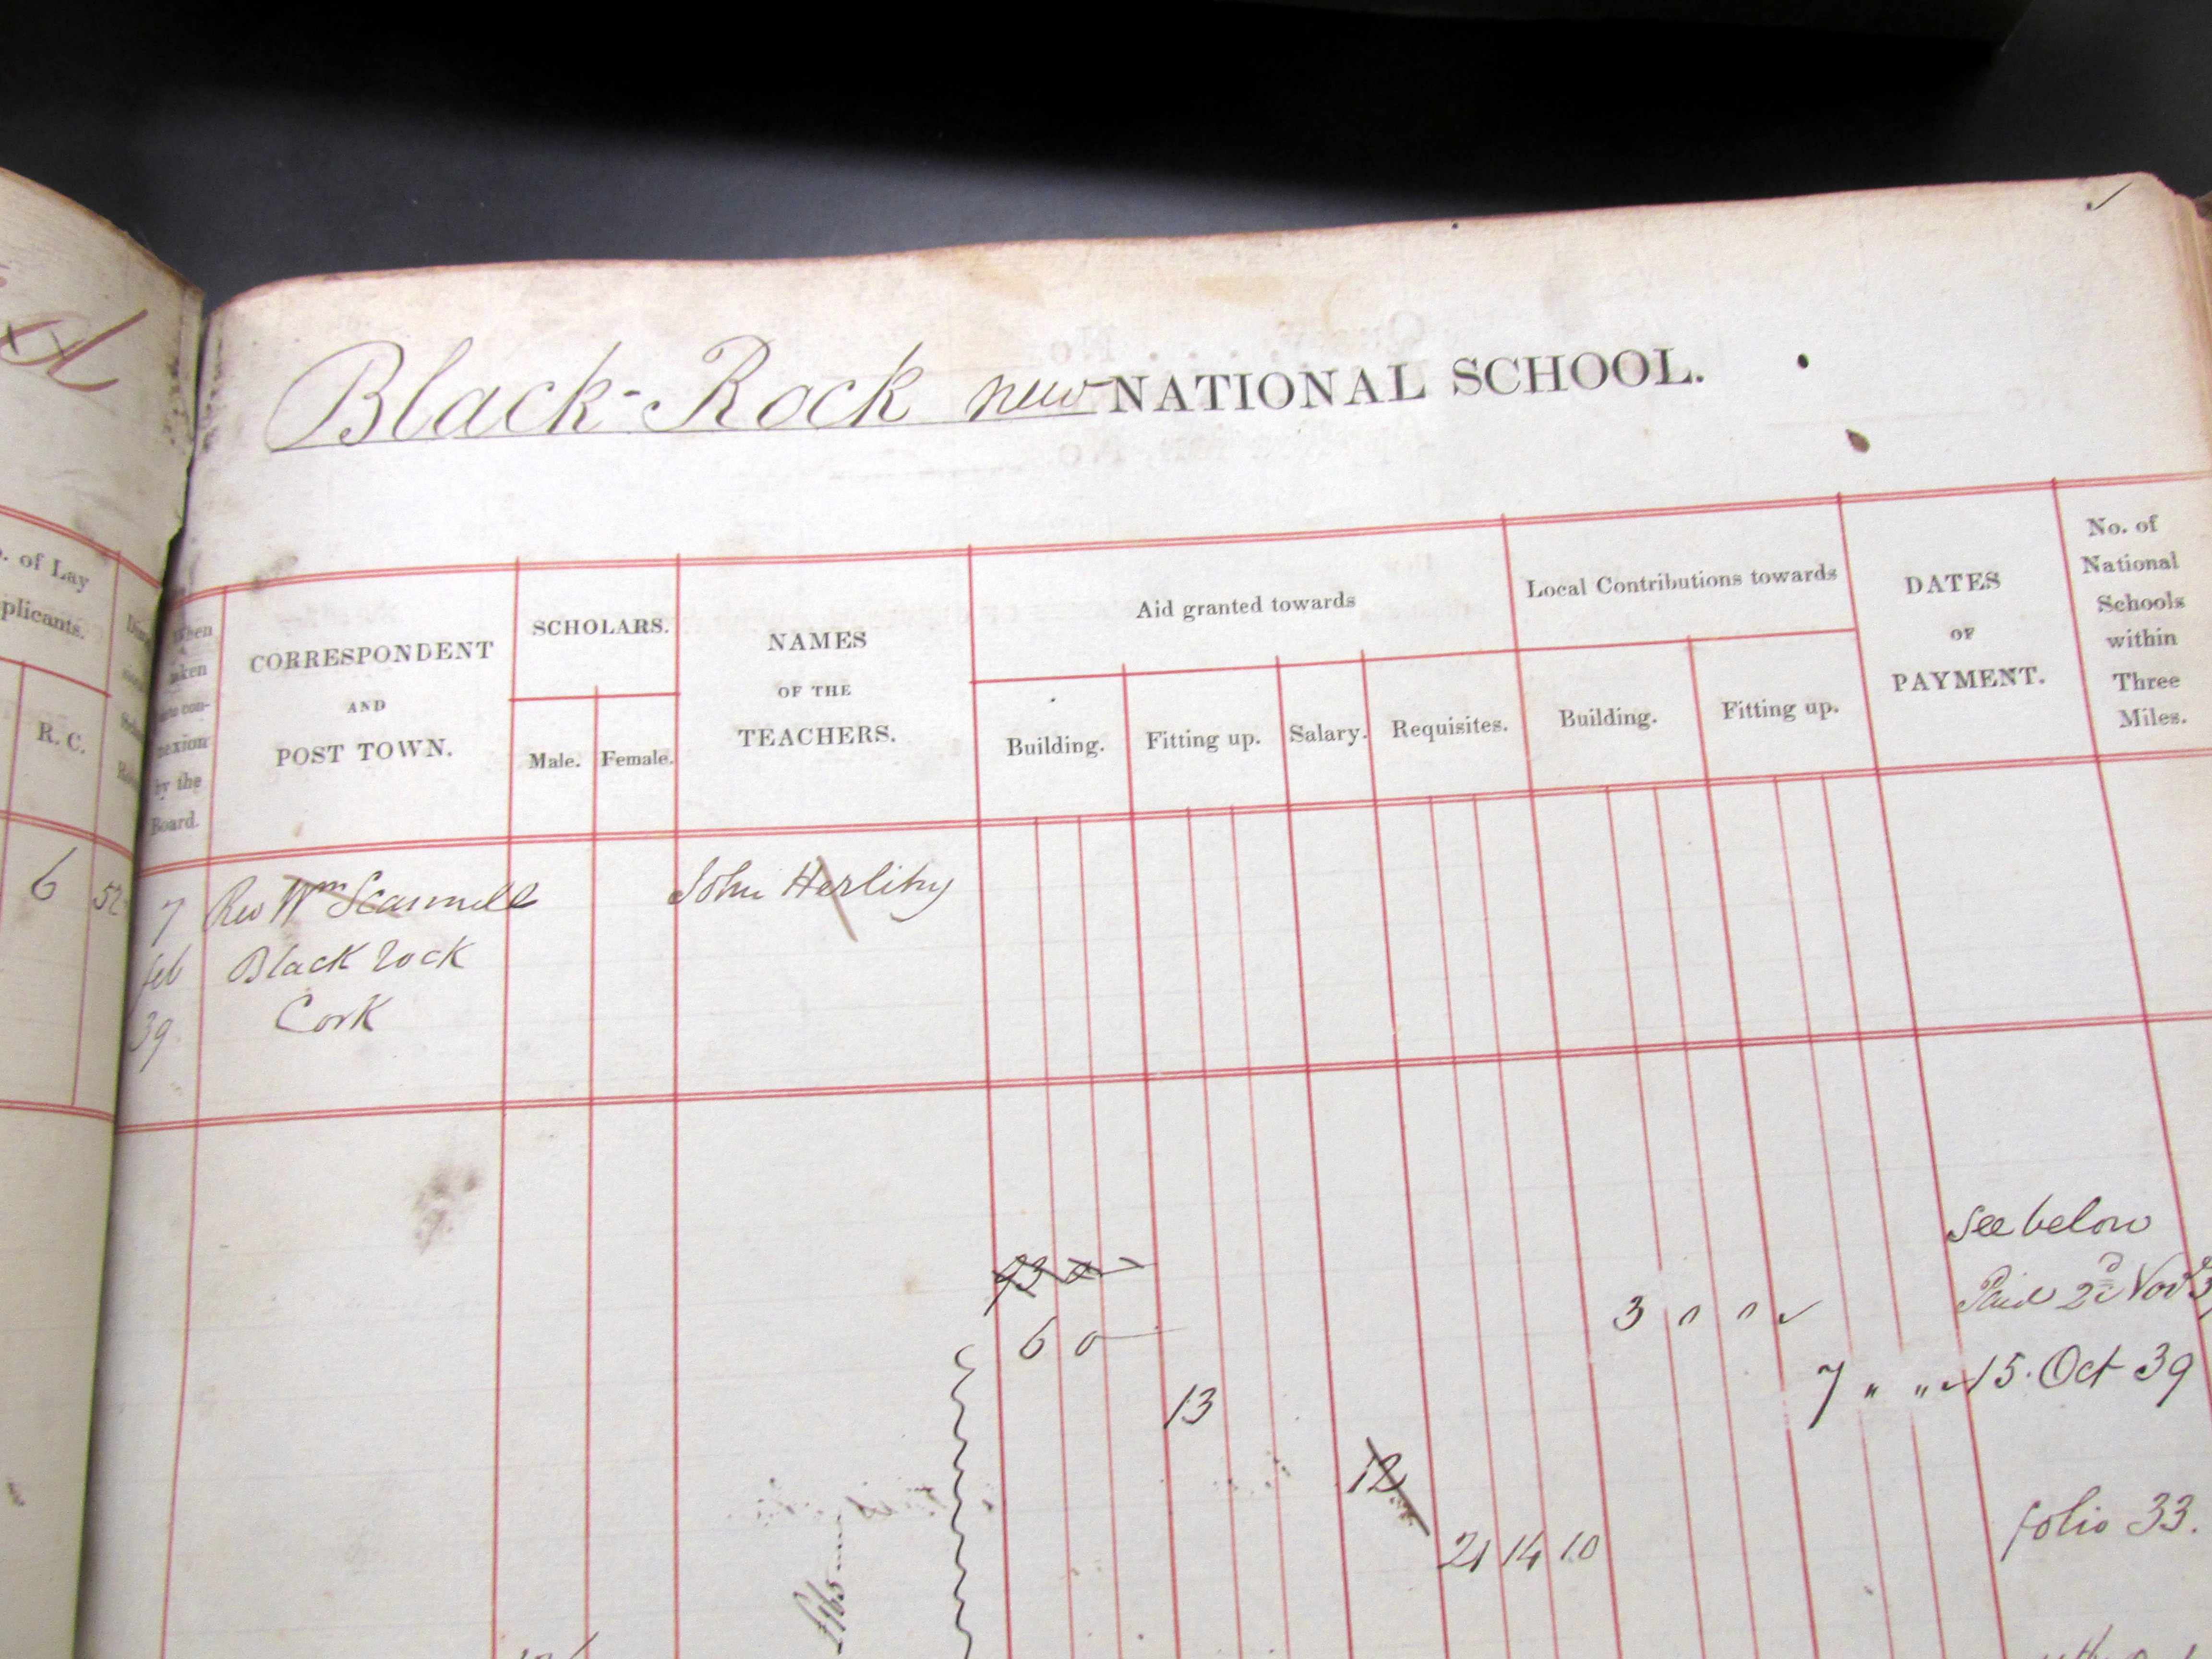 Black-Rock new NATIONAL SCHOOL.
of Lay
plicants.
R. C.
6
52
When
taken
into con-
nexion
by the
Board.
CORRESPONDENT
AND
POST TOWN.
SCHOLARS.
Male.
Female.
NAMES
OF THE
TEACHERS.
Aid granted towards
Building.
Fitting up.
Salary.
Requisites.
Local Contributions towards
Building.
Fitting up.
DATES
OF
PAYMENT.
No. of
National
Schools
within
Three
Miles.
7
feb
39
Rev Wm Scannell
Black rock
Cork
John Herlihy
See below
93
6 0
3 " "
Paid 2d Nov
13
7 " "
15. Oct 39
12
21 14 10
folio 33.
£165